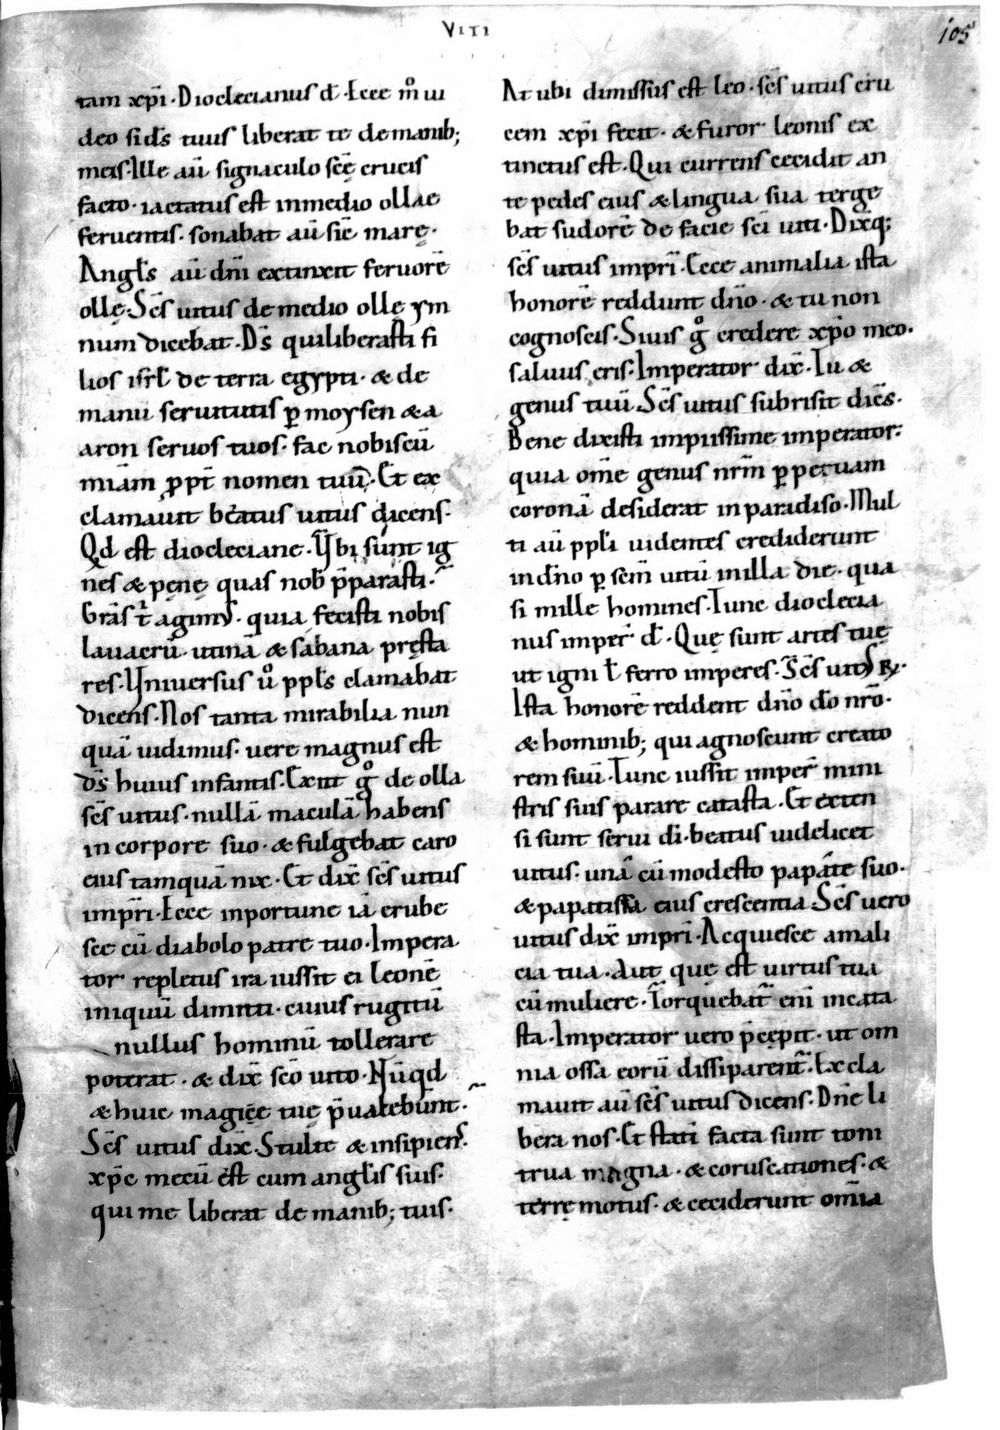 VITI
105
tam xp̄i · Dioclecianus d̄ · Ecce m̊ ui
deo si d̄s tuus liberat te de manib;
meis · Ille aū signaculo sc̄ę crucis
facto · iactatus est in medio ollae
feruentis · sonabat aū sic̄ mare ·
Angl̄s aū dn̄i extinxit feruorē
ollę · Sc̄s uitus de medio ollę ym
num dicebat · D̄s qui liberasti fi
lios isrl̄ de terra egypti · & de
manu seruitutis ꝑ moysen & a
aron seruos tuos · fac nobiscū
miām ꝓpt̄ nomen tuū · Et ex
clamauit beatus uitus dicens ·
Qd est diocleciane · Ubi sunt ig
nes & penę quas nob̄ p̄parasti ·
Grās t̄ agimꝰ · quia fecisti nobis
lauacrū · utinā & sabana pręsta
res · Uniuersus ů ppl̄s clamabat
dicens · Nos tanta mirabilia nun
quā uidimus · uere magnus est
d̄s huius infantis · Exiit g̊ de olla
sc̄s uitus · nullā maculā habens
in corpore suo · & fulgebat caro
eius tamquā nix · Et dix̄ sc̄s uitus
imp̄ri · Ecce inportune iā erube
sce cū diabolo patre tuo · Impera
tor repletus ira iussit ei leonē
iniquū dimitti · cuius rugitū
nullus hominū tollerare
poterat · & dix̄ sc̄o uito · Nūqd
& huic magicę tuę p̄ualebunt ·
Sc̄s uitus dix̄ · Stulte & insipiens ·
xp̄c mecū est cum angl̄is suis ·
qui me liberat de manib; tuis ·
At ubi dimissus est leo · sc̄s uitus cru
cem xp̄i fecit · & furor leonis ex
tinctus est · Qui currens cecidit an
te pedes eius & lingua sua terge
bat sudorē de facie sc̄i uiti · Dixq;
sc̄s uitus imp̄ri · Ecce animalia ista
honorē reddunt dn̄o · & tu non
cognoscis · Si uis g̊ credere xp̄o meo ·
saluus eris · Imperator dix̄ · Tu &
genus tuū · Sc̄s uitus subrisit dic̄s ·
Bene dixisti impiissime imperator ·
quia om̄e genus nr̄m ꝑpetuam
coronā desiderat in paradiso · Mul
ti aū ppl̄i uidentes crediderunt
in dn̄o ꝑ sc̄m uitū in illa die · qua
si mille homines · Tunc dioclecia
nus imper̄ d̄ · Quę sunt artes tuę
ut igni l̄ ferro imperes · Sc̄s uitꝰ ℞ ·
Ista honorē reddent dn̄o do nr̄o ·
& hominib; qui agnoscunt creato
rem suū · Tunc iussit imper̄ mini
stris suis parare catasta · Et exten
si sunt serui di · beatus uidelicet
uitus · unā cū modesto papate suo ·
& papatissa eius crescentia · Sc̄s uero
uitus dix̄ imp̄ri · Acquiesce amali
cia tua · Aut quę est uirtus tua
cū muliere · Torquebat̄ eni in cata
sta · Imperator uero p̄cępit · ut om
nia ossa eorū dissiparent̄ · Excla
mauit aū sc̄s uitus dicens · Dn̄e li
bera nos · Et stati facta sunt toni
trua magna · & coruscationes · &
terrę motus · & ceciderunt om̄ia